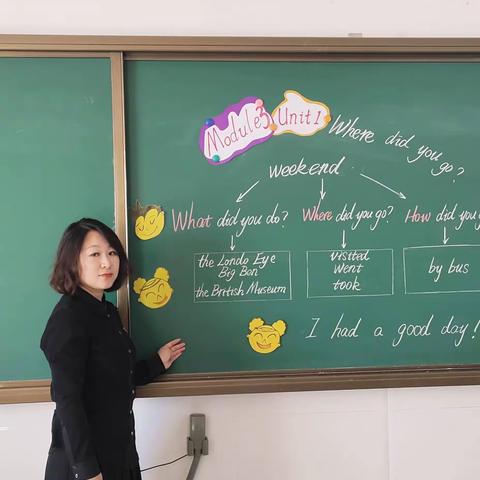 Module3 Unit1 Where did you go?
weekend
What did you do? Where did you go? How did you
the Londo Eye
Big Ben
the British Museum
visited
went
took
by bus
I had a good day!